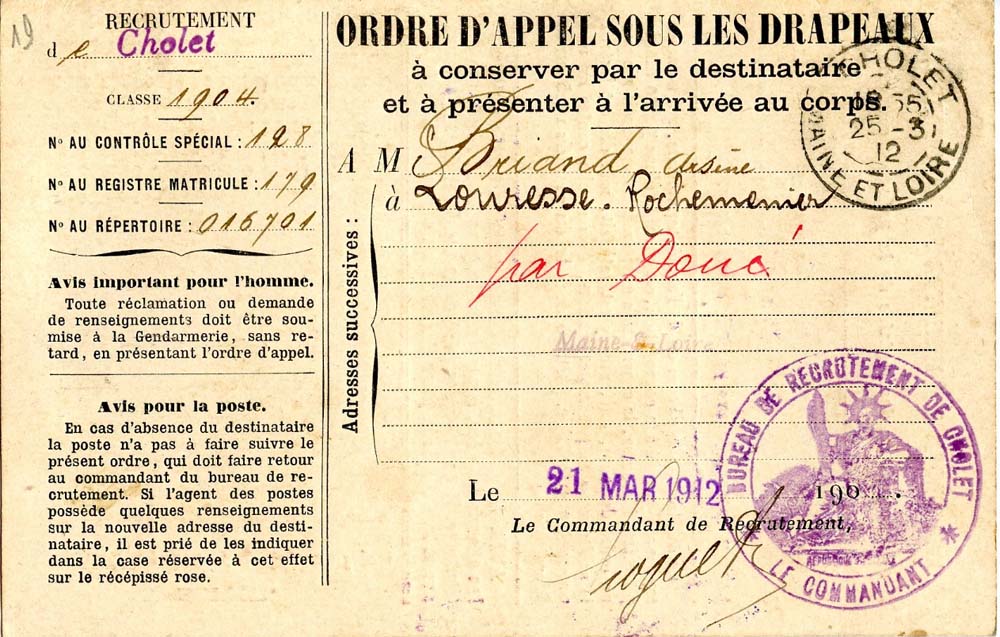 19
RECRUTEMENT
de Cholet
CLASSE 1904.
Nº AU CONTRÔLE SPÉCIAL : 128
Nº AU REGISTRE MATRICULE : 179
Nº AU RÉPERTOIRE : 016701
Avis important pour l'homme.
Toute réclamation ou demande
de renseignements doit être sou-
mise à la Gendarmerie, sans re-
tard, en présentant l'ordre d'appel.
Avis pour la poste.
En cas d'absence du destinataire
la poste n'a pas à faire suivre le
présent ordre, qui doit faire retour
au commandant du bureau de re-
crutement. Si l'agent des postes
possède quelques renseignements
sur la nouvelle adresse du desti-
nataire, il est prié de les indiquer
dans la case réservée à cet effet
sur le récépissé rose.
ORDRE D'APPEL SOUS LES DRAPEAUX
à conserver par le destinataire
et à présenter à l'arrivée au corps.
CHOLET
25 - 3
12
MAINE ET LOIRE
A M Briand Arsène
à Louresse-Rochemenier
par Doué
Maine-&-Loire
Adresses successives :
Le 21 MAR 1912 190 .
Le Commandant de Recrutement,
BUREAU DE RECRUTEMENT DE CHOLET
LE COMMANDANT